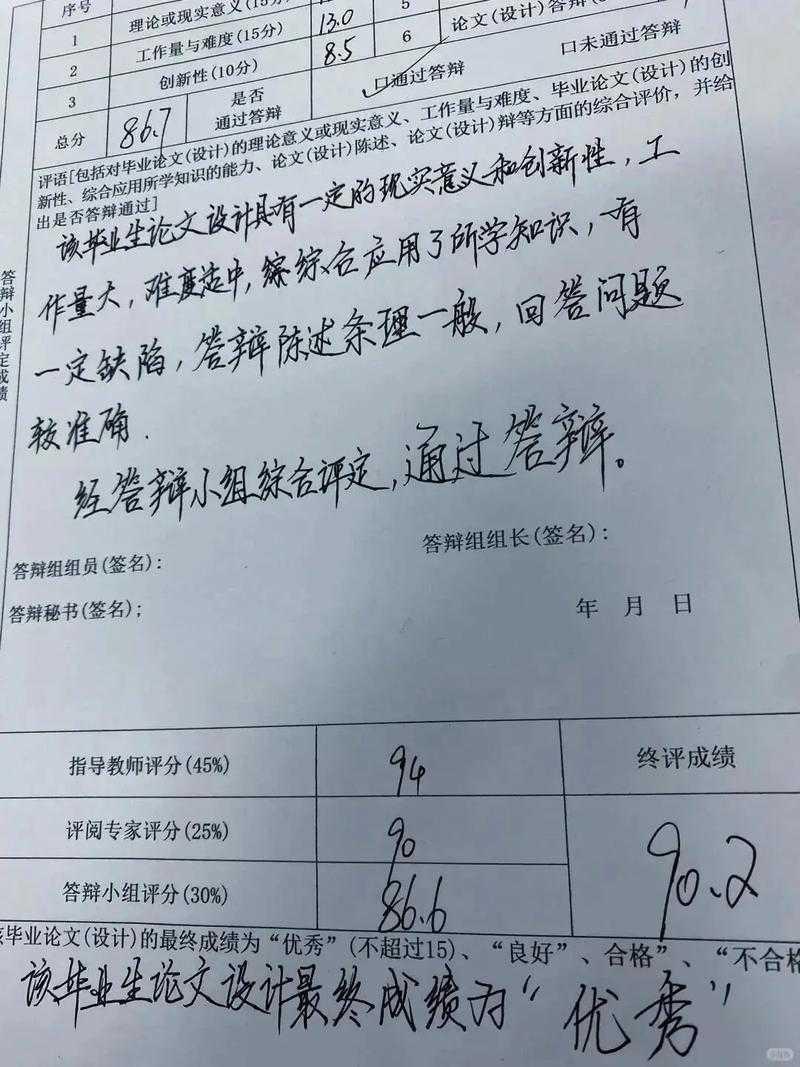 序号
理论或现实意义(15分)
5
论文(设计)答辩
1
工作量与难度(15分)
13.0
6
2
创新性(10分)
8.5
□通过答辩
□未通过答辩
3
总分
86.7
是否
通过答辩
评语[包括对毕业论文(设计)的理论意义或现实意义、工作量与难度、毕业论文(设计)的创
新性、综合应用所学知识的能力、论文(设计)陈述、论文(设计)辩等方面的综合评价，并给
出是否答辩通过]
该毕业生论文设计具有一定的现实意义和创新性，工
作量大，难度适中，综综合应用了所学知识，有
一定缺陷，答辩陈述条理一般，回答问题
较准确.
经答辩小组综合评定，通过答辩。
答辩小组评定成绩
答辩组组员(签名)：
答辩组组长(签名)：
答辩秘书(签名)；
年 月 日
指导教师评分(45%)
94
终评成绩
评阅专家评分(25%)
90
90.2
答辩小组评分(30%)
86.6
毕业论文(设计)的最终成绩为“优秀”(不超过15)、“良好”、合格”、“不合格
该毕业生论文设计最终成绩为“优秀”